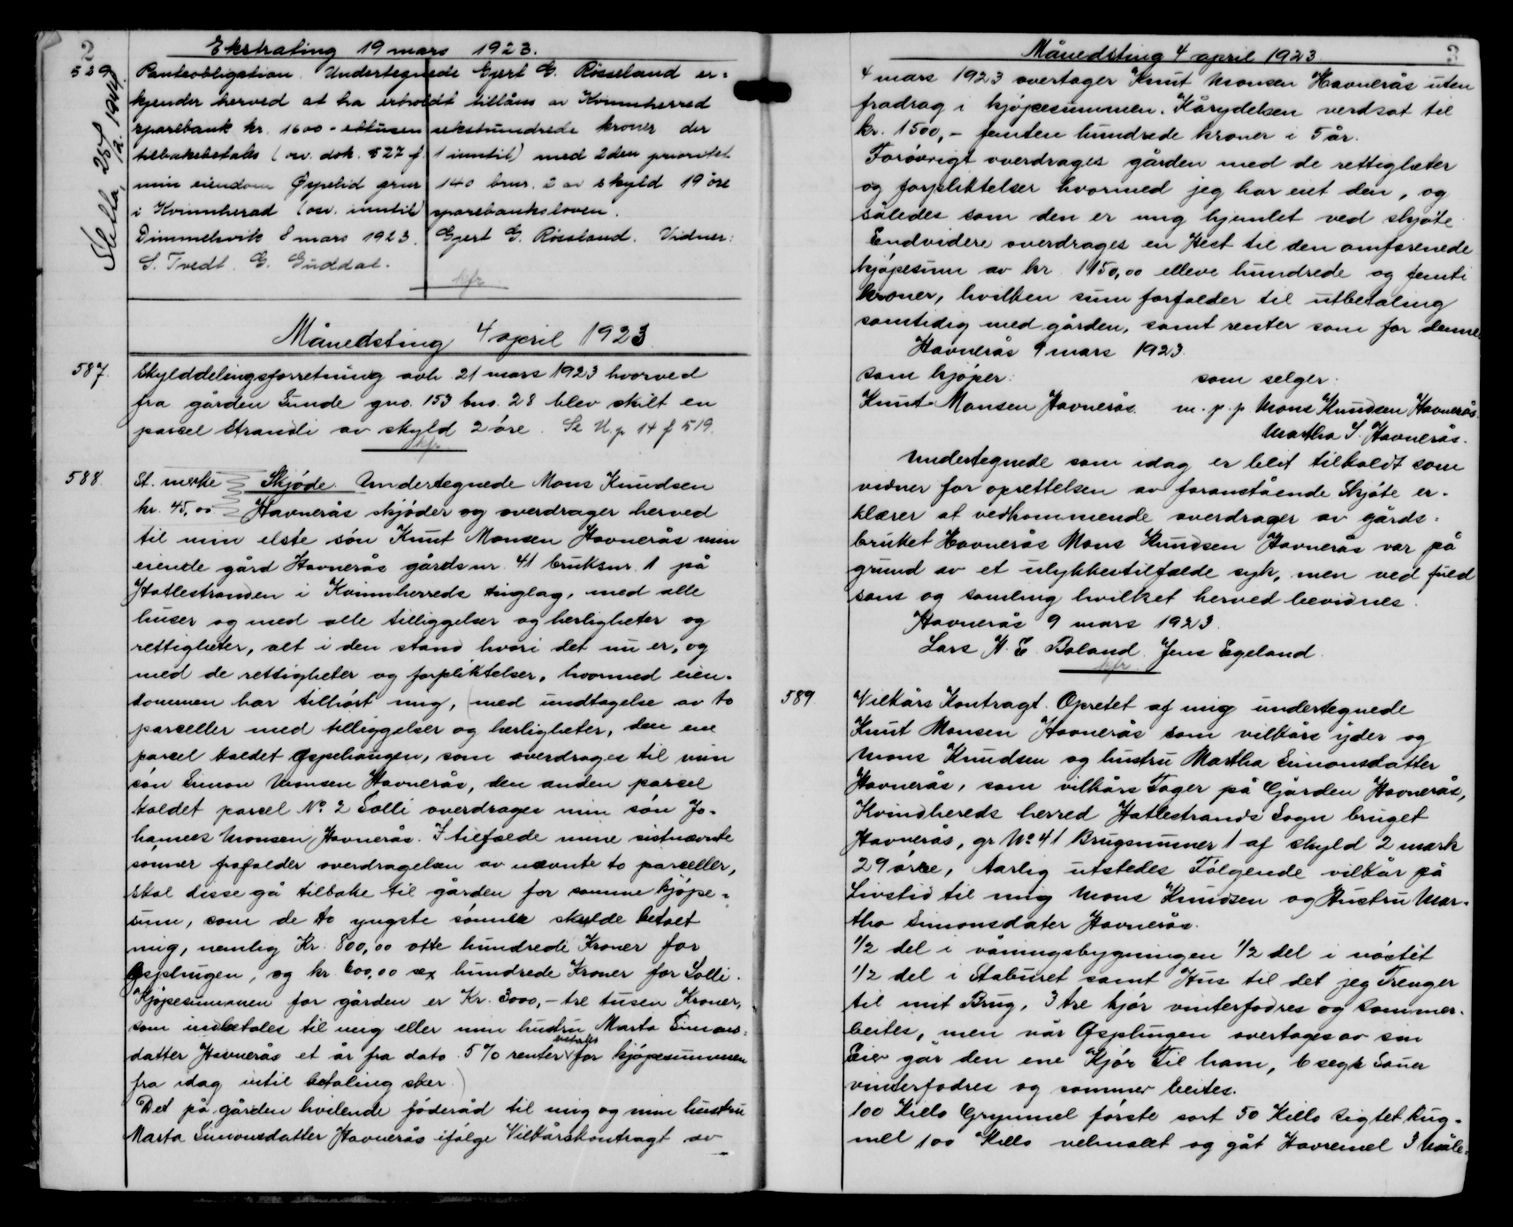 2
Ekstrating 19 mars 1923.
529
Slettet 25/2. 1944
Panteobligation. Undertegnede Gjert G. Røsseland er-
kjender herved at ha erholdt tillåns av Kvinnherred
sparebank kr. 1600 - ettusen sekshundrede kroner der
tilbakebetales (ov. dok. 527 f. 1 inntil) med 2den prioritet
min eiendom Øyrelid gnr 140 bnr. 2 av skyld 19 öre
i Kvinnherad (ov. inntil) sparebanksloven.
Dimmelsvik 8 mars 1923. Gjert G. Røsseland. Vidner:
S. Tvedt. G. Guddal.
kfr
Månedsting 4 april 1923
587.
Skylddelingsforretning avh. 21 mars 1923 hvorved
fra gården Sunde gno. 153 bno. 28 blev skilt en
parsel Strandi av skyld 2 öre. Se U.p 14 f 519.
kfr.
588
St. merke Skjöde. Undertegnede Mons Knudsen
kr. 45,00 Havnerås skjöder og overdrager herved
til min elste sön Knut Monsen Havnerås min
eiende gård Havnerås gårdsnr. 41 bruksnr. 1 på
Hatlestranden i Kvinnherreds tinglag, med alle
huser og med alle tilliggelser og herligheter og
rettigheter, alt i den stand hvori det nu er, og
med de rettigheter og forpliktelser, hvormed eien-
dommen har tilhört mig, (med undtagelse av to
parseller med tilliggelser og herligheter, den ene
parsel kaldet Ospehaugen, som overdrages til min
sön Simon Monsen Havnerås, den anden parsel
kaldet parsel No 2 Solli overdrages min sön Jo-
hannes Monsen Havnerås. I tilfælde mine sistnævnte
sönner frafalder overdragelsen av nævnte to parseller,
skal disse gå tilbake til gården for samme kjöpe-
sum, som de to yngste sönner skulde betalt
mig, nemlig Kr. 800,00 otte hundrede Kroner for
Osphugen, og kr 600,00 sex hundrede Kroner for Solli.
Kjöpesummen for gården er Kr. 3000,- tre tusen Kroner,
som indbetales til mig eller min hustru Marta Simons-
datter Havnerås et år fra dato. 5 % renter betales for kjöpesummen
fra idag intil betaling sker.)
Det på gården hvilende föderåd til mig og min hustru
Marta Simonsdatter Havnerås ifölge Vilkårskontragt av
Månedsting 4 april 1923.
3
4 mars 1923 overtager Knut Monsen Havnerås uten
fradrag i kjöpesummen. Kårydelsen verdsat til
kr. 1500,- femten hundrede kroner i 5 år.
Forövrigt overdrages gården med de rettigheter
og forpliktelser hvormed jeg har eiet den, og
således som den er mig hjemlet ved skjöte.
Endvidere overdrages en Hest til den omforenede
kjöpesum av kr 1150,00 elleve hundrede og femti
kroner, hvilken sum forfalder til utbetaling
samtidig med gården, samt renter som for denne.
Havnerås 9 mars 1923.
som kjöper: som selger:
Knut Monsen Havnerås. m. p. p Mons Knudsen Havnerås
Martha S. Havnerås.
Undertegnede som idag er blet tilkaldt som
vidner for oprettelsen av foranstående Skjöte er-
klærer at vedkommende overdrager av gårds-
bruket Havnerås Mons Knudsen Havnerås var på
grund av et ulykkestilfælde syk, men ved fuld
sans og samling hvilket herved bevidnes.
Havnerås 9 mars 1923
Lars N. E. Baland. Jens Egeland.
kfr
589
Vilkårs Kontragt. Opretet af mig undertegnede
Knut Monsen Havnerås som vilkårs yder og
Mons Knudsen og hustru Martha Simonsdatter
Havnerås, som vilkårs Tager på Gården Havnerås,
Kvindhereds herred Hatlestrands Sogn bruget
Havnerås, gr No 41 Brugsnumer 1 af skyld 2 mark
29 öre, Aarlig utstedes Fölgende vilkår på
Livstid til mig Mons Knudsen og Hustru Mar-
tha Simonsdater Havnerås.
1/2 del i våningsbygningen 1/2 del i nöstet
1/2 del i Staburet samt Hus til det jeg Trenger
til mit Brug, 3 tre kjör vinterfodres og Sommer-
beites, men når Osplugen overtages av sin
Eier går den ene Kjör Til ham, 6 segs Sauer
vinterfodres og sommer beites.
100 Killo Grynmel förste sort 50 Killo sigtet Rug-
mel 100 Killo velmalet og gåt Havremel 3 Måle-